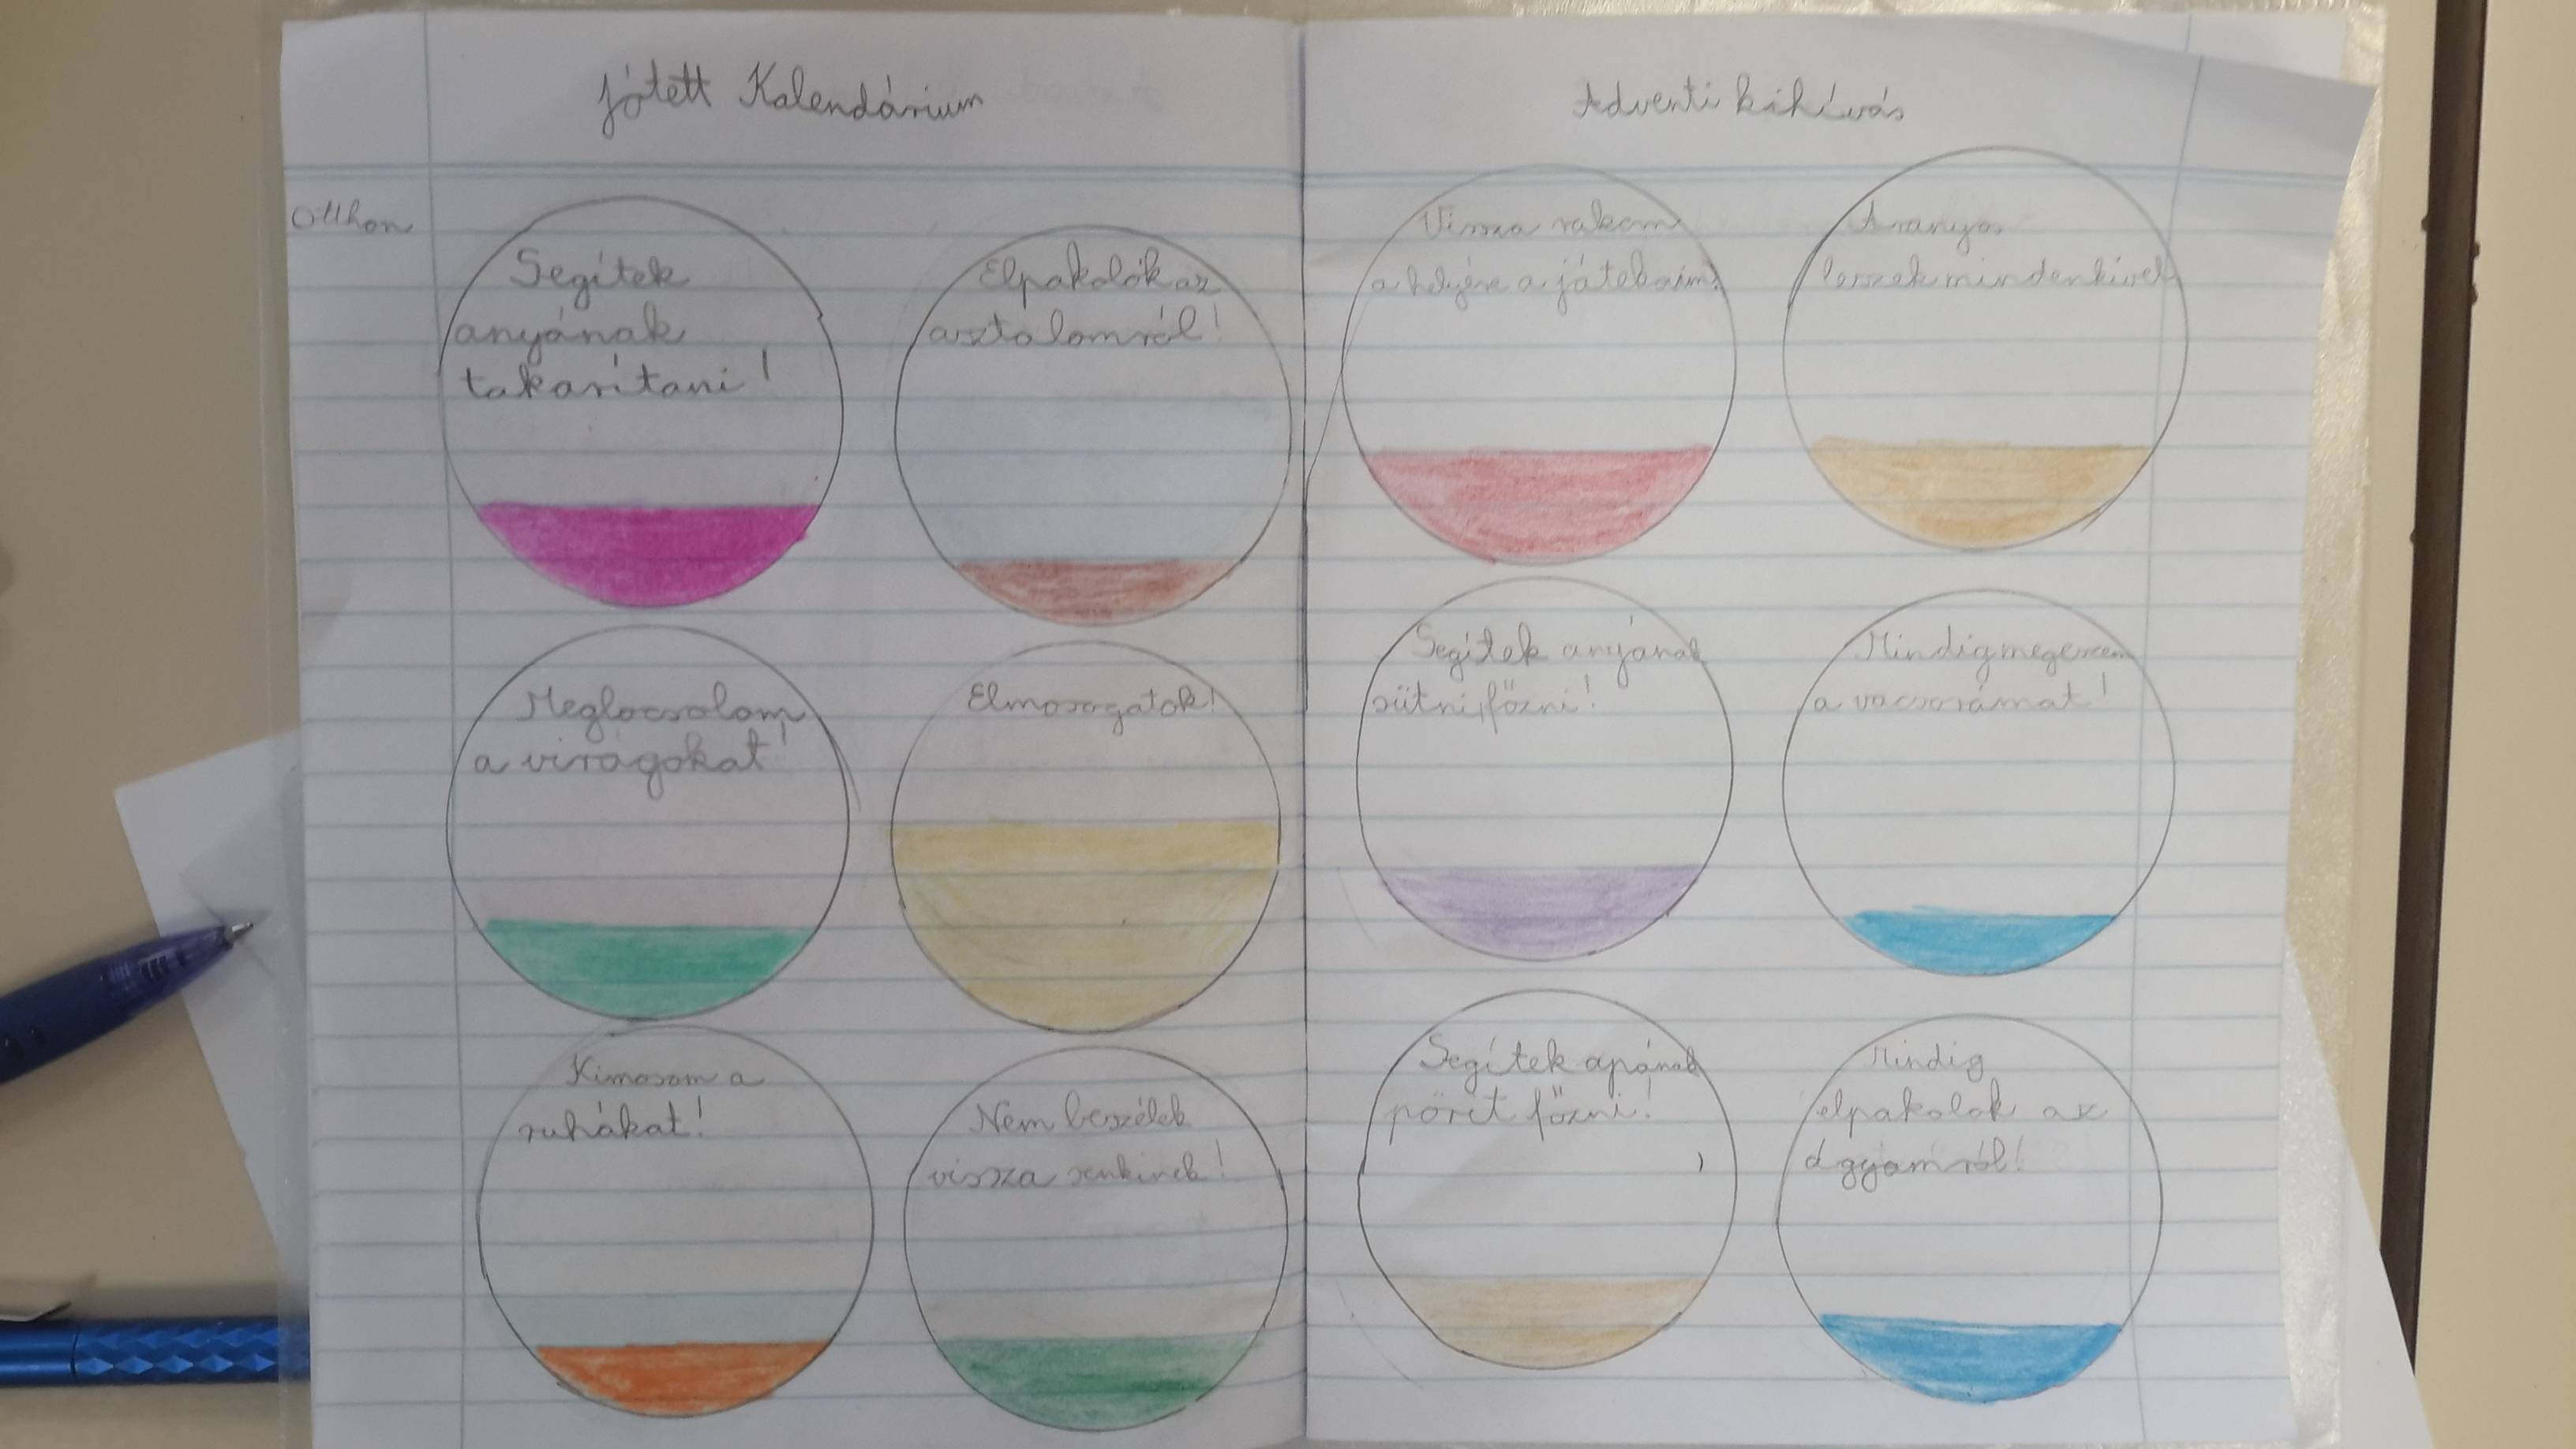 Jótett Kalendárium
Otthon
Segítek
anyának
takarítani!
Elpakolok az
asztalomról!
Meglocsolom
a virágokat!
Elmosogatok!
Kimosom a
ruhákat!
Nem beszélek
vissza senkinek!
Adventi kihívás
Vissza rakom
a helyére a játékaim!
Aranyos
leszek mindenkivel
Segítek anyának
sütni, főzni!
Mindig megeszem
a vacsorámat!
Segítek apának
pörit főzni!
Mindig
elpakolok az
ágyamról!